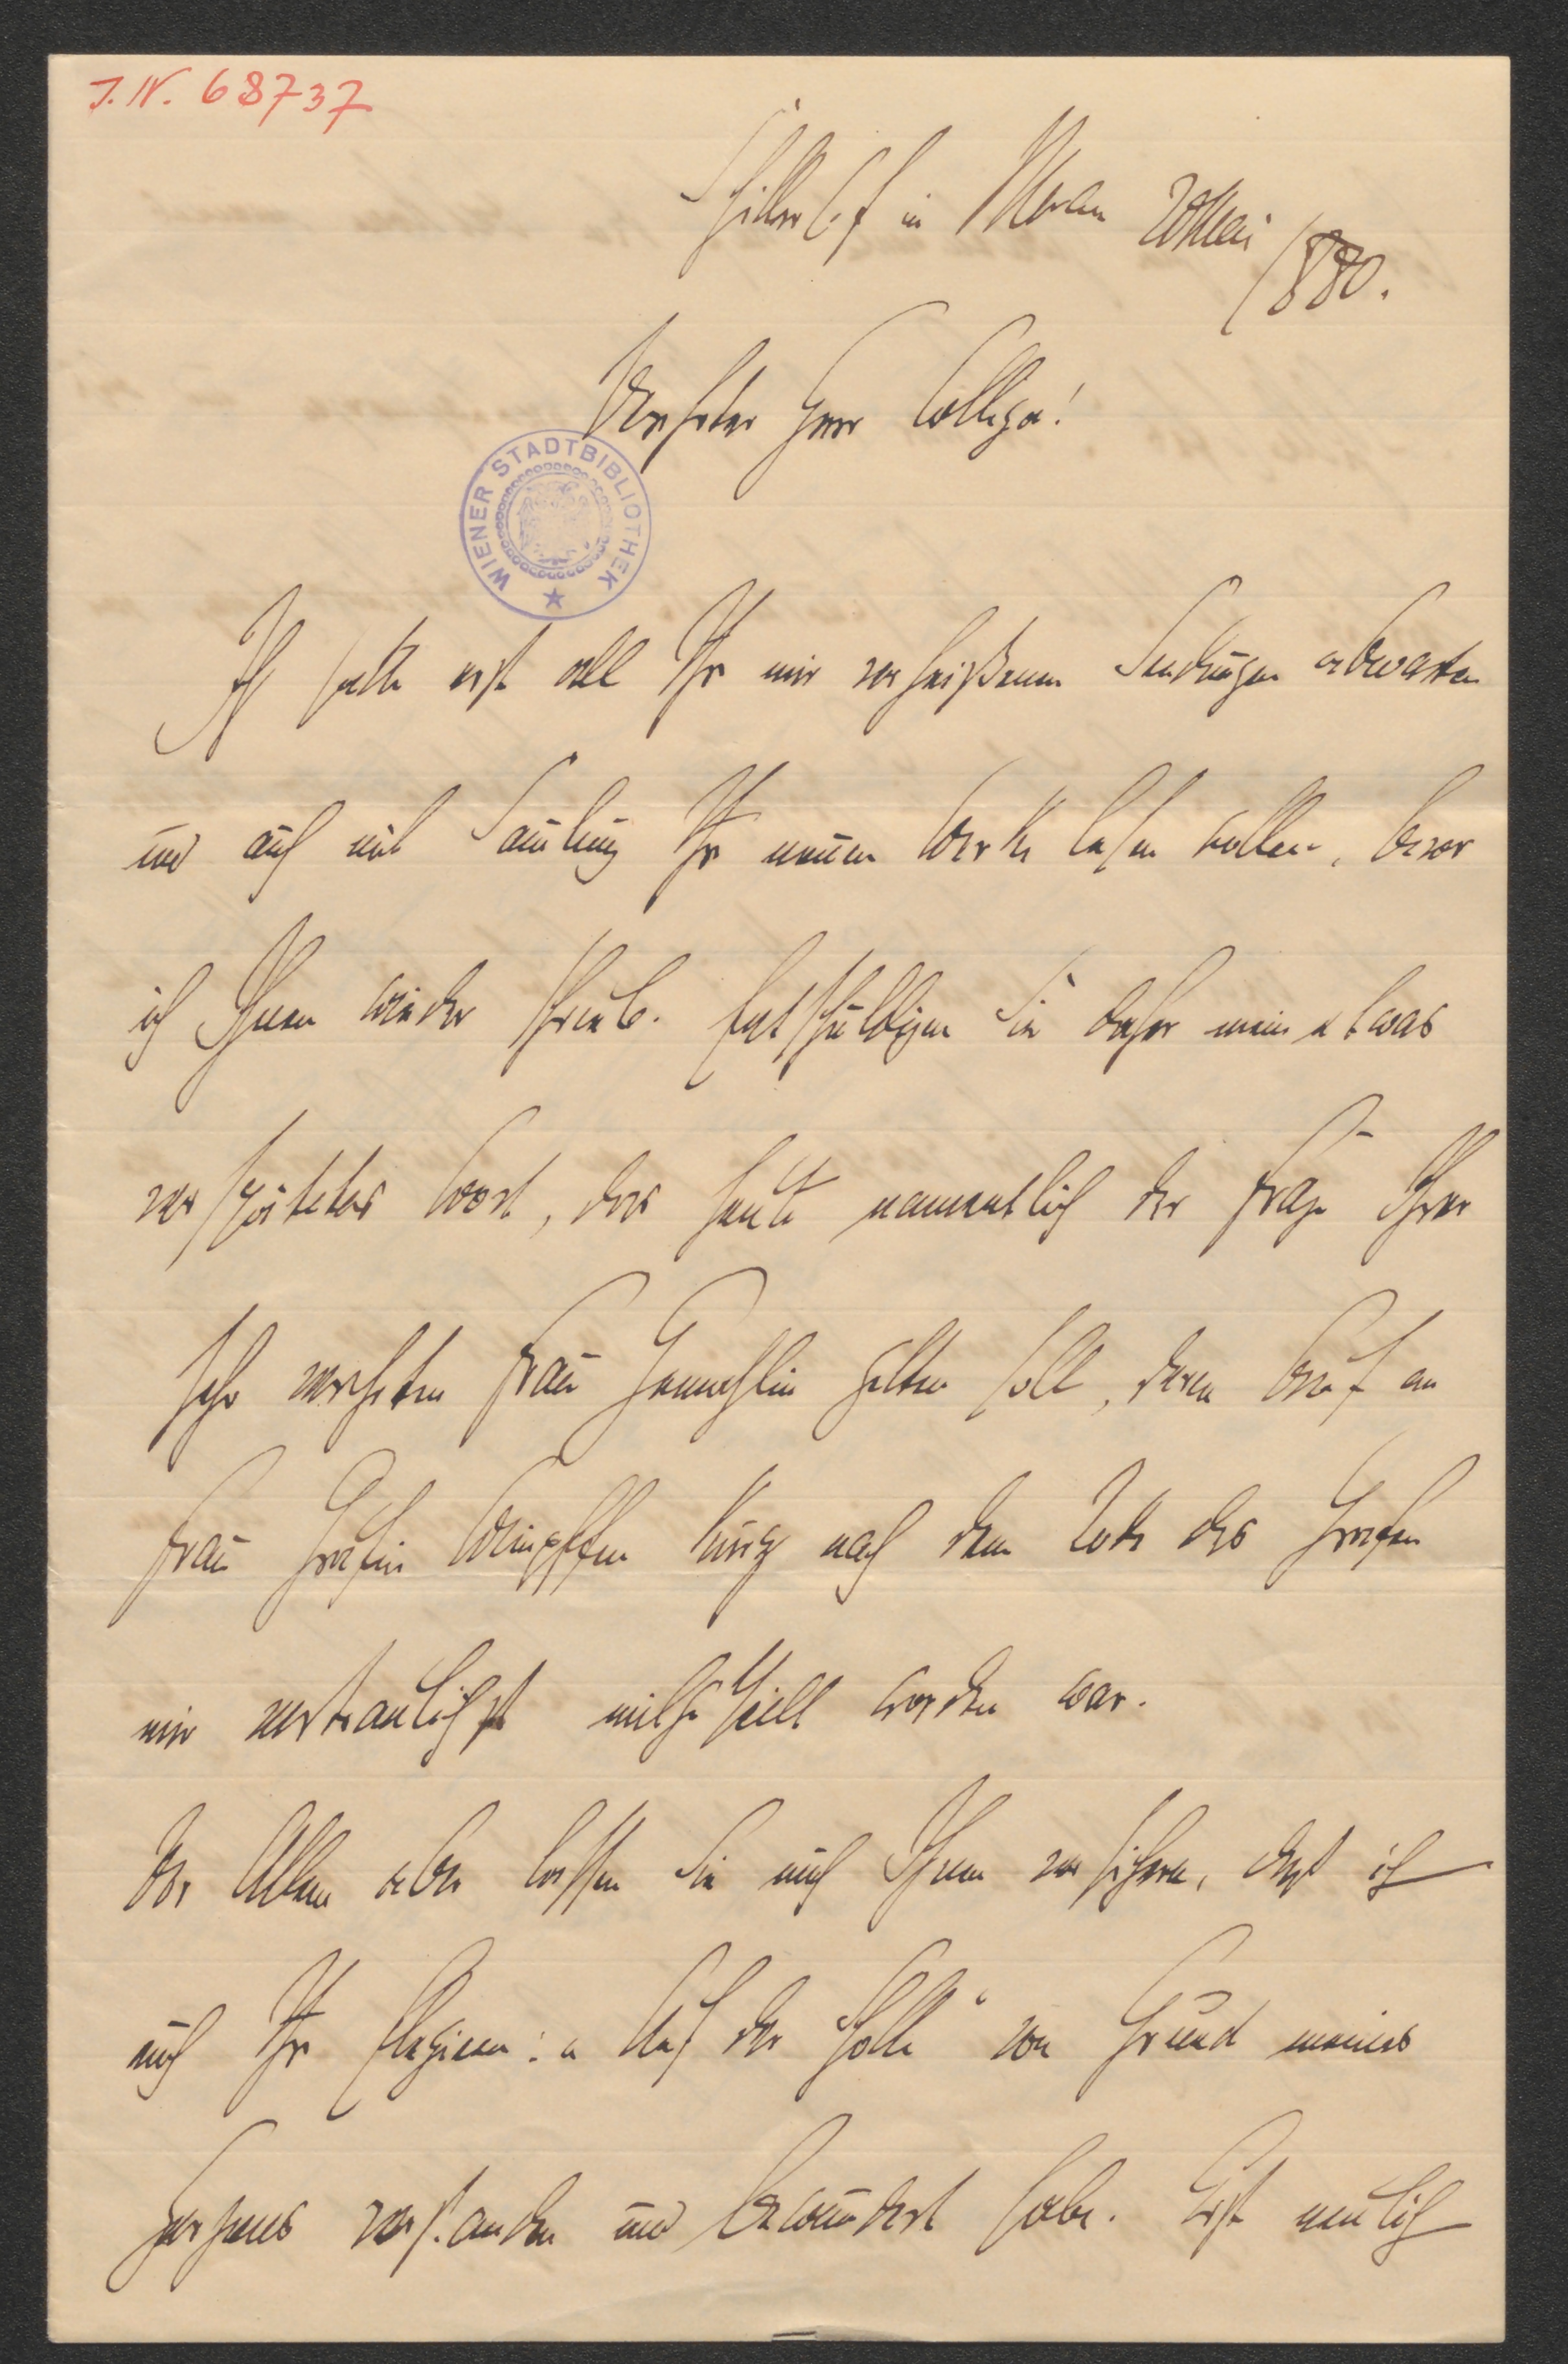 J. N. 68737
Schillerhof in Meran 20 Mai
1880.
Verehrter Herr Collega!
WIENER STADTBIBLIOTHEK
Ich hatte erst all Ihre mir verheißenen Sendungen abwarten
und auch mit Ihre neuen Werke lesen wollen, bevor
ich Ihnen wieder schrieb. Entschuldigen Sie daher mein etwas
verspätetes Wort, das heute namentlich der Frage Ihrer
sehr verehrten Frau Gemahlin gelten soll, deren Brief an
Frau Gräfin Wimpffen kurz nach dem Tode des Grafen
mir vertraulichst mitgetheilt worden war.
Vor Allem aber lassen Sie mich Ihnen versichern, daß ich
auch Ihre Elegieen: „Auf der Scholle" von Grund meines
Herzens verstanden und bewundert habe. Erst neulich